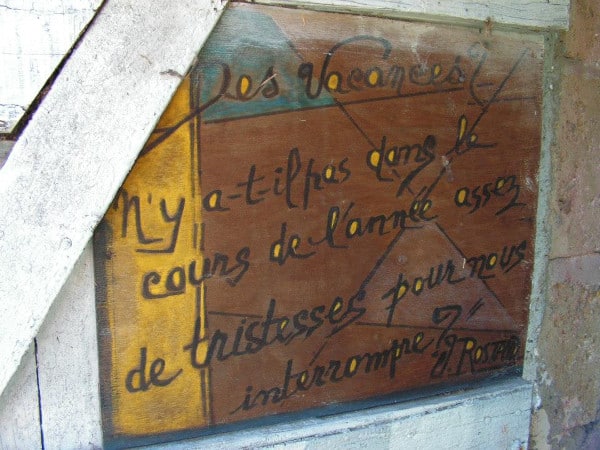 Des Vacances?
n'y a-t-il pas dans le
cours de l'année assez
de tristesses pour nous
interrompre?"
J. ROSTAND